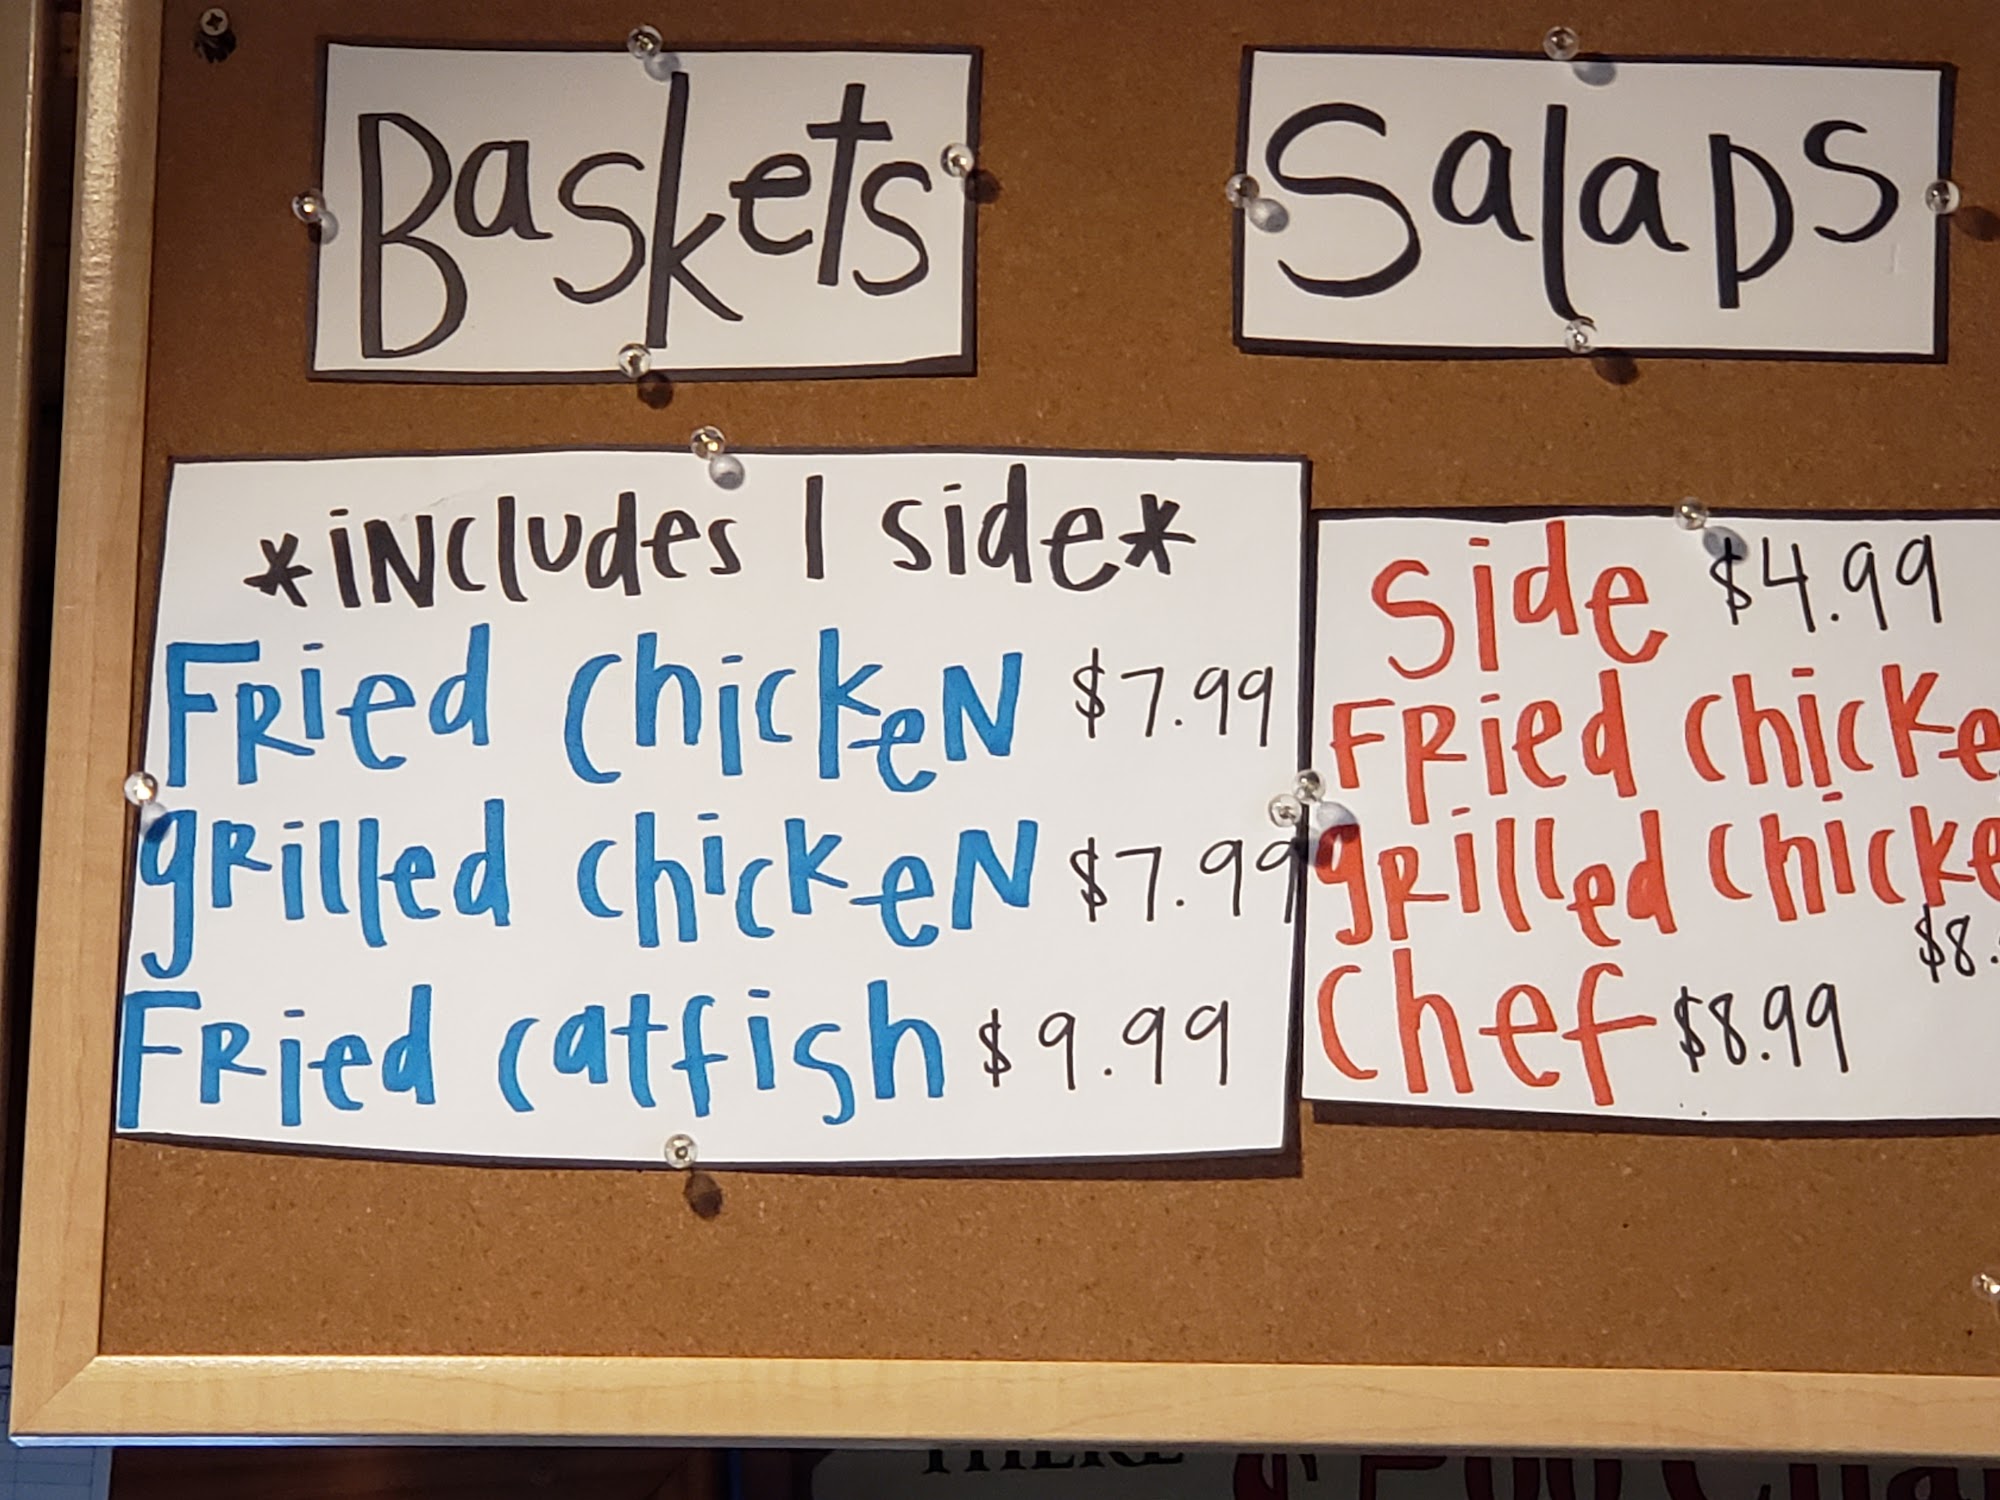 Baskets
Salads
*includes 1 side*
Fried chicken $7.99
grilled chicken $7.99
Fried catfish $9.99
Side $4.99
Fried chicke
grilled chicke
$8.
Chef $8.99
THERE